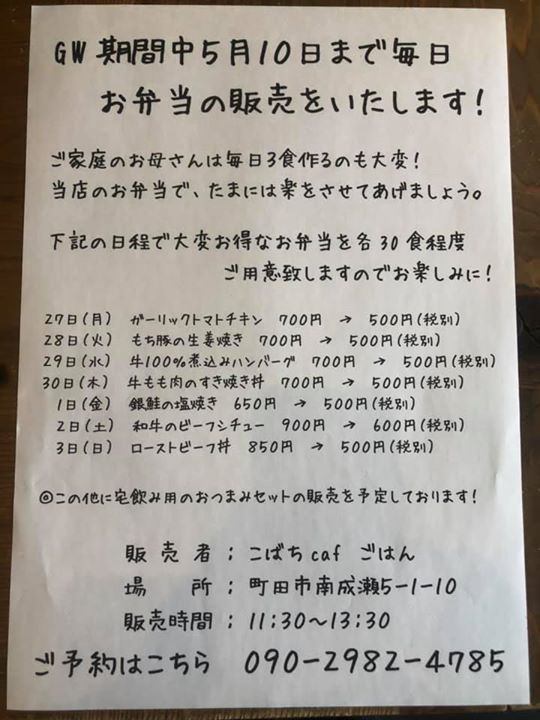 GW期間中5月10日まで毎日
お弁当の販売をいたします!
ご家庭のお母さんは毎日3食作るのも大変!
当店のお弁当で、たまには楽をさせてあげましょう。
下記の日程で大変お得なお弁当を各30食程度
ご用意致しますのでお楽しみに!
27日(月) ガーリックトマトチキン 700円 → 500円(税別)
28日(火) もち豚の生姜焼き 700円 → 500円(税別)
29日(水) 牛100%煮込みハンバーグ 700円 → 500円(税別)
30日(木) 牛もも肉のすき焼き丼 700円 → 500円(税別)
1日(金) 銀鮭の塩焼き 650円 → 500円(税別)
2日(土) 和牛のビーフシチュー 900円 → 600円(税別)
3日(日) ローストビーフ丼 850円 → 500円(税別)
◎この他に宅飲み用のおつまみセットの販売を予定しております!
販売者:こばちcaf ごはん
場 所:町田市南成瀬5-1-10
販売時間:11:30~13:30
ご予約はこちら 090-2982-4785